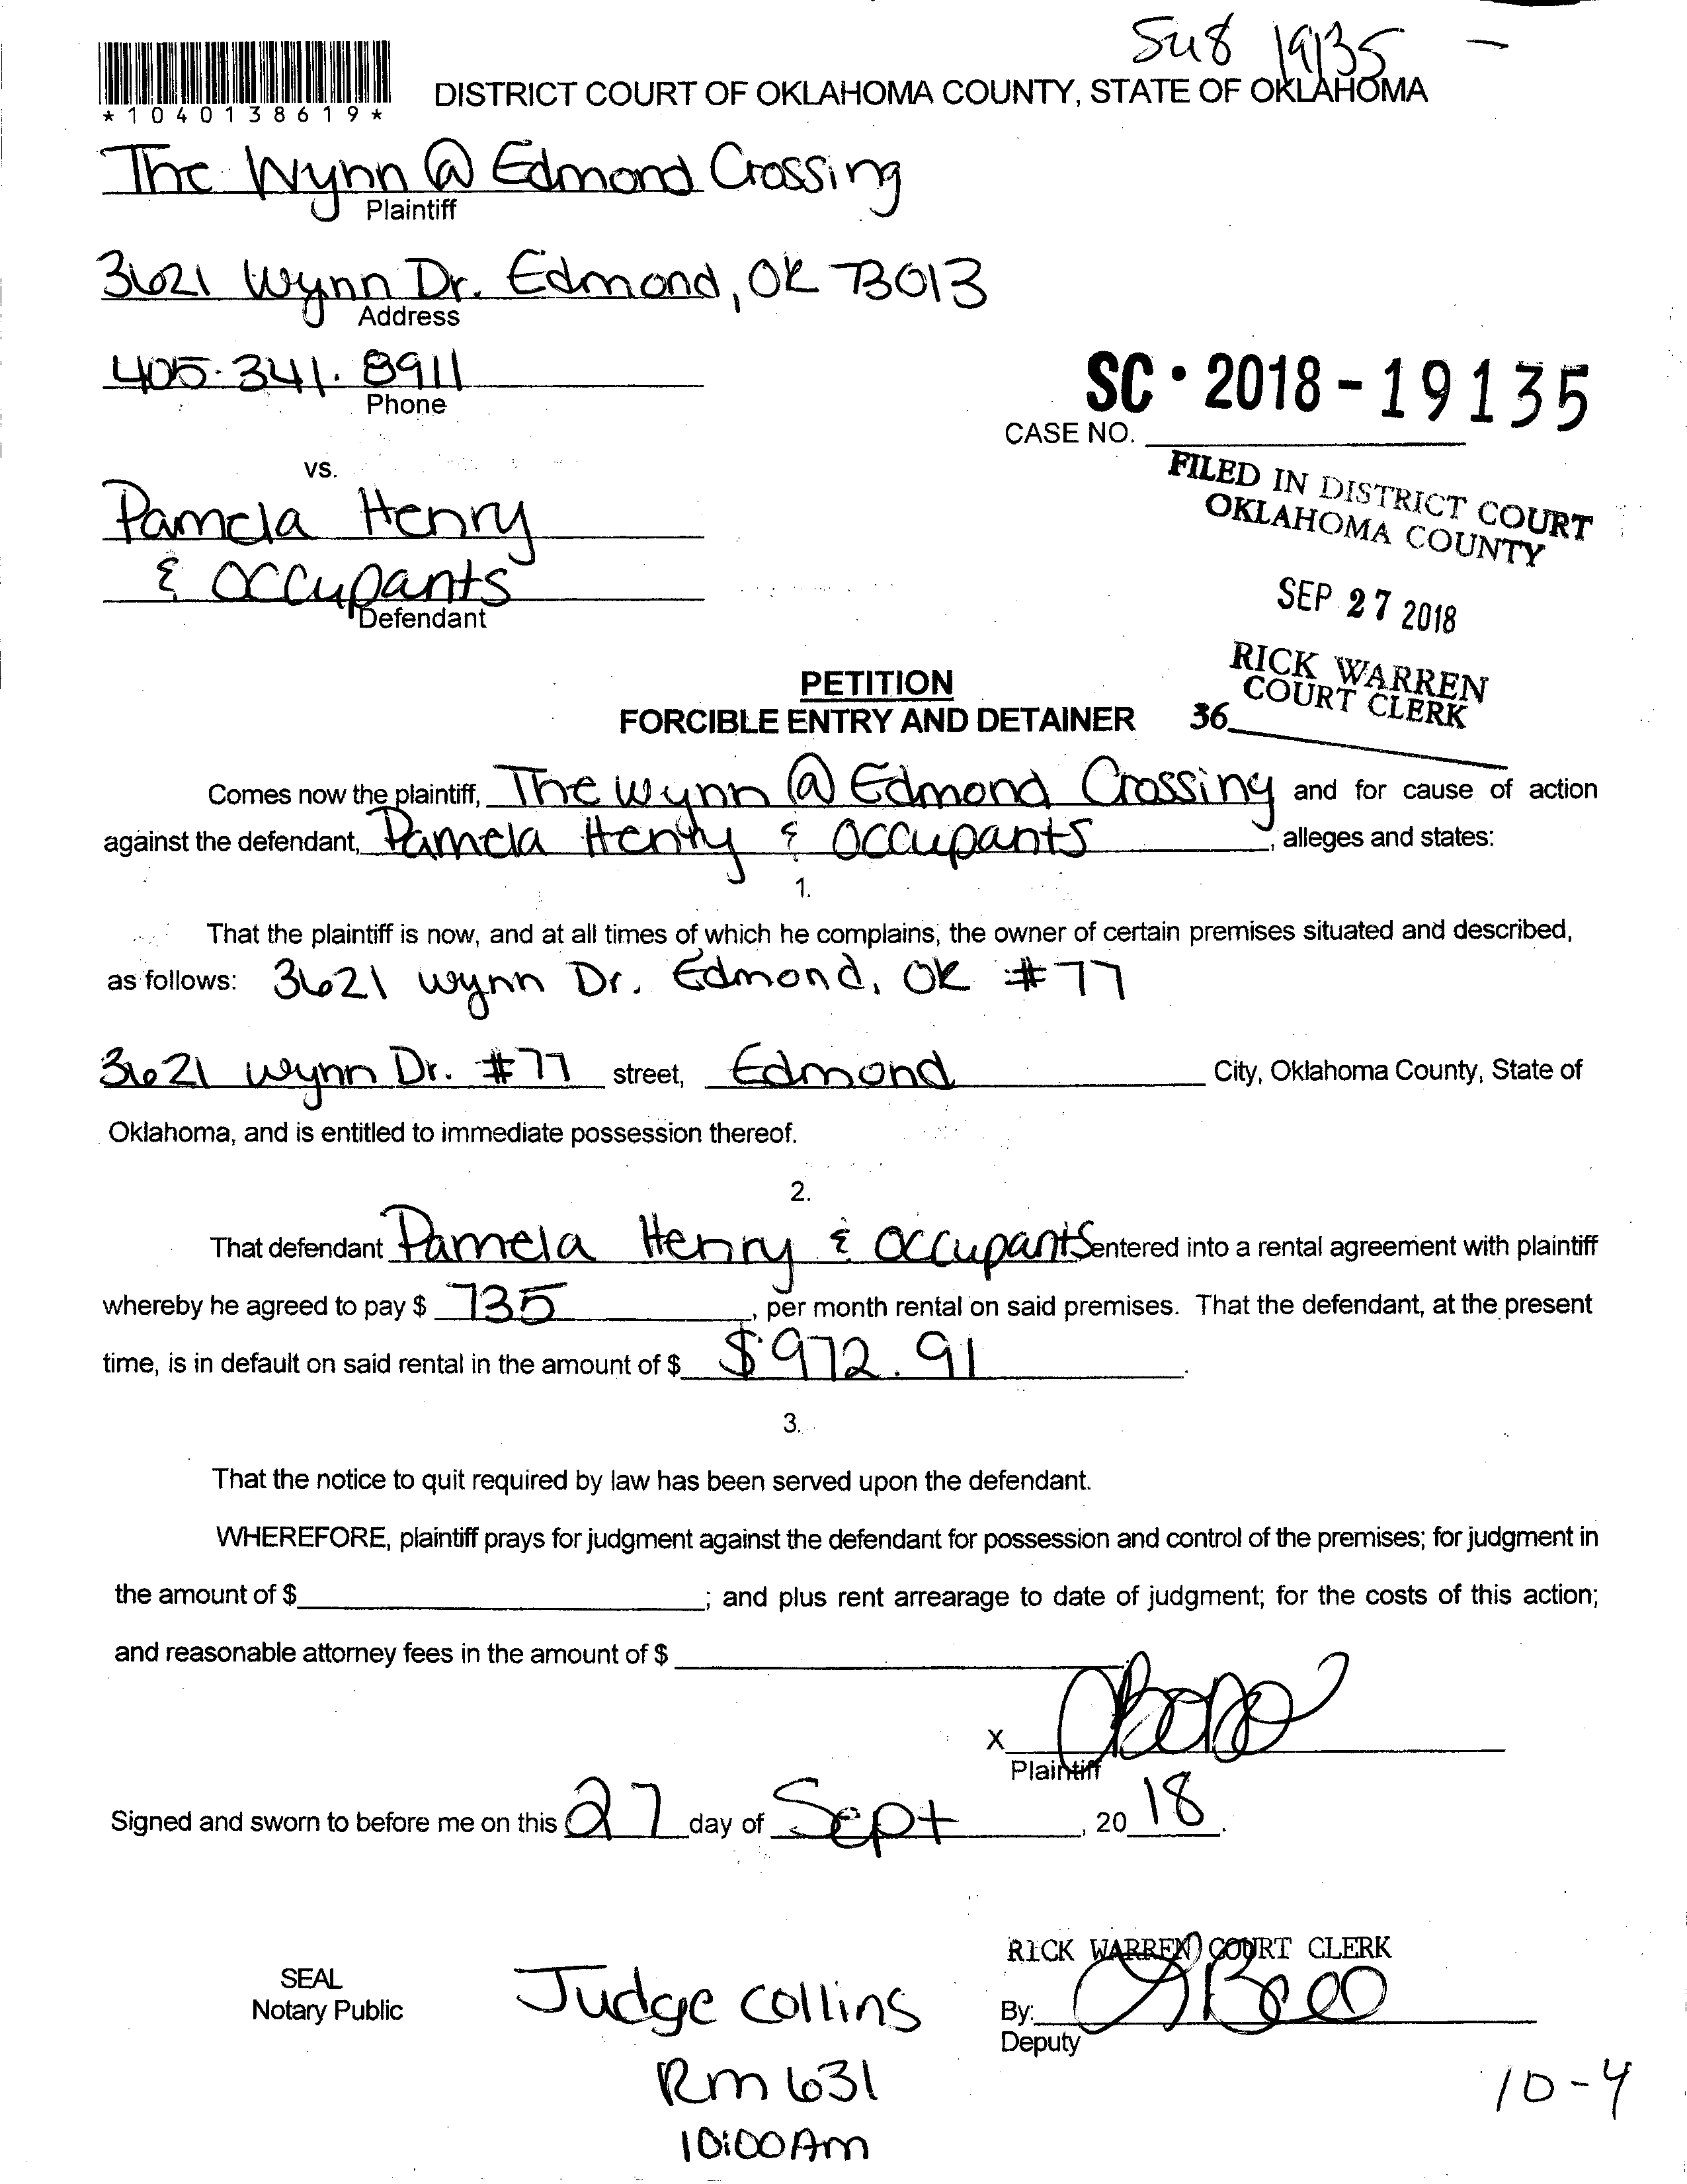 Su8 19135 -
*1040138619*
DISTRICT COURT OF OKLAHOMA COUNTY, STATE OF OKLAHOMA
The Wynn @ Edmond Crossing
Plaintiff
3621 Wynn Dr. Edmond, OK 73013
Address
405-341-8911
Phone
SC • 2018 - 19135
CASE NO.
vs.
FILED IN DISTRICT COURT
OKLAHOMA COUNTY
Pamela Henry
& Occupants
Defendant
SEP 27 2018
RICK WARREN
COURT CLERK
36
PETITION
FORCIBLE ENTRY AND DETAINER
Comes now the plaintiff, The Wynn @ Edmond Crossing and for cause of action
against the defendant, Pamela Henry & Occupants, alleges and states:
1.
That the plaintiff is now, and at all times of which he complains, the owner of certain premises situated and described,
as follows: 3621 Wynn Dr. Edmond, OK #77
3621 Wynn Dr. #77 street, Edmond City, Oklahoma County, State of
Oklahoma, and is entitled to immediate possession thereof.
2.
That defendant Pamela Henry & Occupants entered into a rental agreement with plaintiff
whereby he agreed to pay $ 735, per month rental on said premises. That the defendant, at the present
time, is in default on said rental in the amount of $ $972.91.
3.
That the notice to quit required by law has been served upon the defendant.
WHEREFORE, plaintiff prays for judgment against the defendant for possession and control of the premises; for judgment in
the amount of $ ; and plus rent arrearage to date of judgment; for the costs of this action;
and reasonable attorney fees in the amount of $
X
Plaintiff
Signed and sworn to before me on this 27 day of Sept, 20 18.
RICK WARREN COURT CLERK
SEAL
Notary Public
Judge Collins
By:
Deputy
Rm 631
10:00 Am
10-4